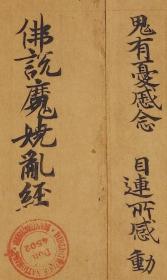 鬼有憂慼念　目連所感動
佛說魔嬈亂經
4502